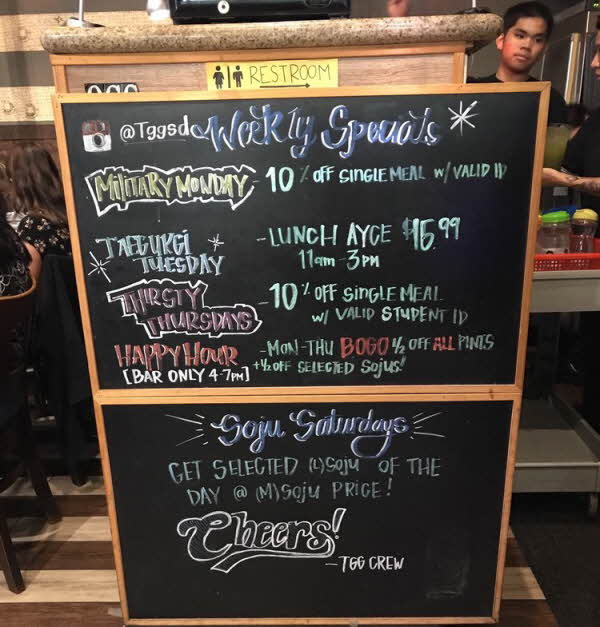 RESTROOM
@Tggsd Weekly Specials
MILITARY MONDAY 10% OFF SINGLE MEAL w/ VALID ID
TAEGUKGI TUESDAY
- LUNCH AYCE $15.99
11am - 3PM
THIRSTY THURSDAYS
- 10% OFF SINGLE MEAL
w/ VALID STUDENT ID
HAPPY HOUR - MON-THU BOGO ½ OFF ALL PINTS
[BAR ONLY 4-7PM] + ½ OFF SELECTED SOJUS!
Soju Saturdays
GET SELECTED (L) SOJU OF THE
DAY @ (M) SOJU PRICE!
Cheers!
- TGG CREW